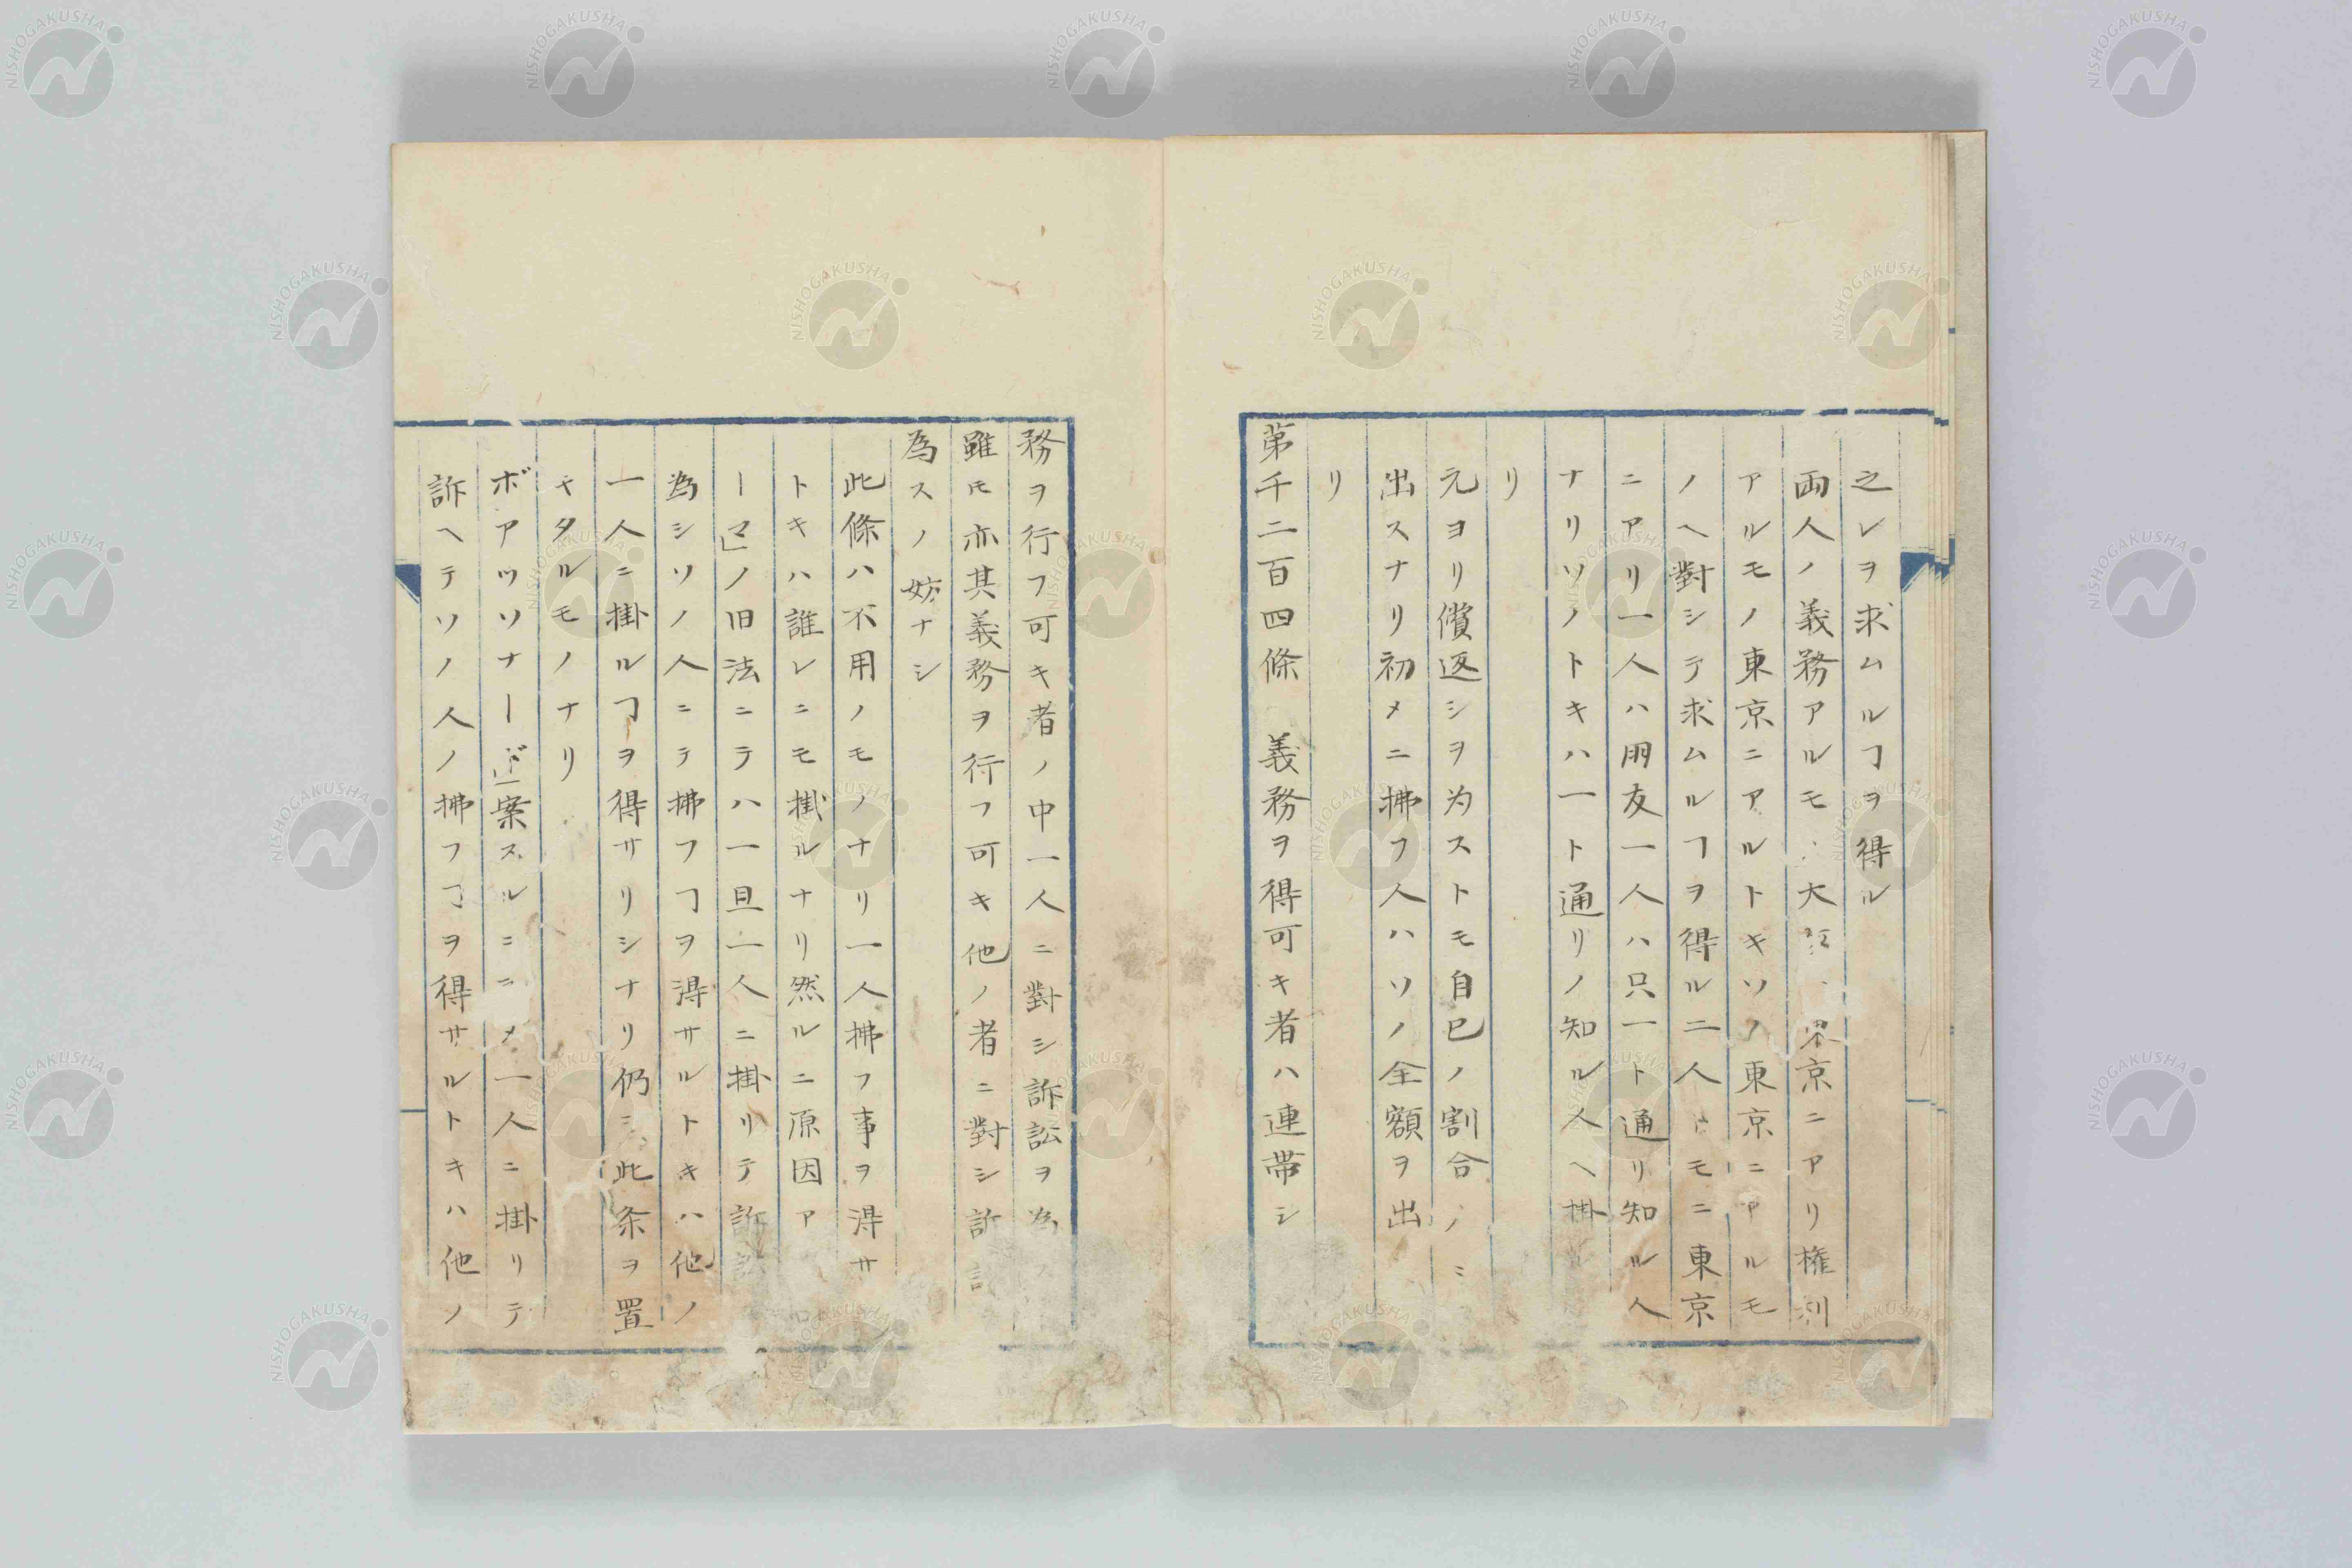 之レヲ求ムルヿヲ得ル
両人ノ義務アルモ 大 京ニアリ権利
アルモノ東京ニアルトキソノ東京ニアルモ
ノヘ對シテ求ムルヿヲ得ル二人トモニ東京
ニアリ一人ハ朋友一人ハ只一ト通リ知ル人
ナリソノトキハ一ト通リノ知ル人ヘ掛
リ
元ヨリ償返シヲ为ストモ自己ノ割合ノミ
出スナリ初メニ拂フ人ハソノ全額ヲ出
リ
第千二百四條 義務ヲ得可キ者ハ連帯シ
務ヲ行フ可キ者ノ中一人ニ對シ訴訟ヲ為
雖モ亦其義務ヲ行フ可キ他ノ者ニ對シ訴
為スノ妨ナシ
此條ハ不用ノモノナリ一人拂フ事ヲ得サ
トキハ誰レニモ掛ルナリ然ルニ原因ア
ーマ」ノ旧法ニテハ一旦一人ニ掛リテ訴訟
為シソノ人ニテ拂フヿヲ得サルトキハ他ノ
一人ニ掛ルヿヲ得サリシナリ仍 此条ヲ置
キタルモノナリ
ボアツソナード」案スルニ 一人ニ掛リテ
訴ヘテソノ人ノ拂フヿヲ得サルトキハ他ノ
NISHOGAKUSHA